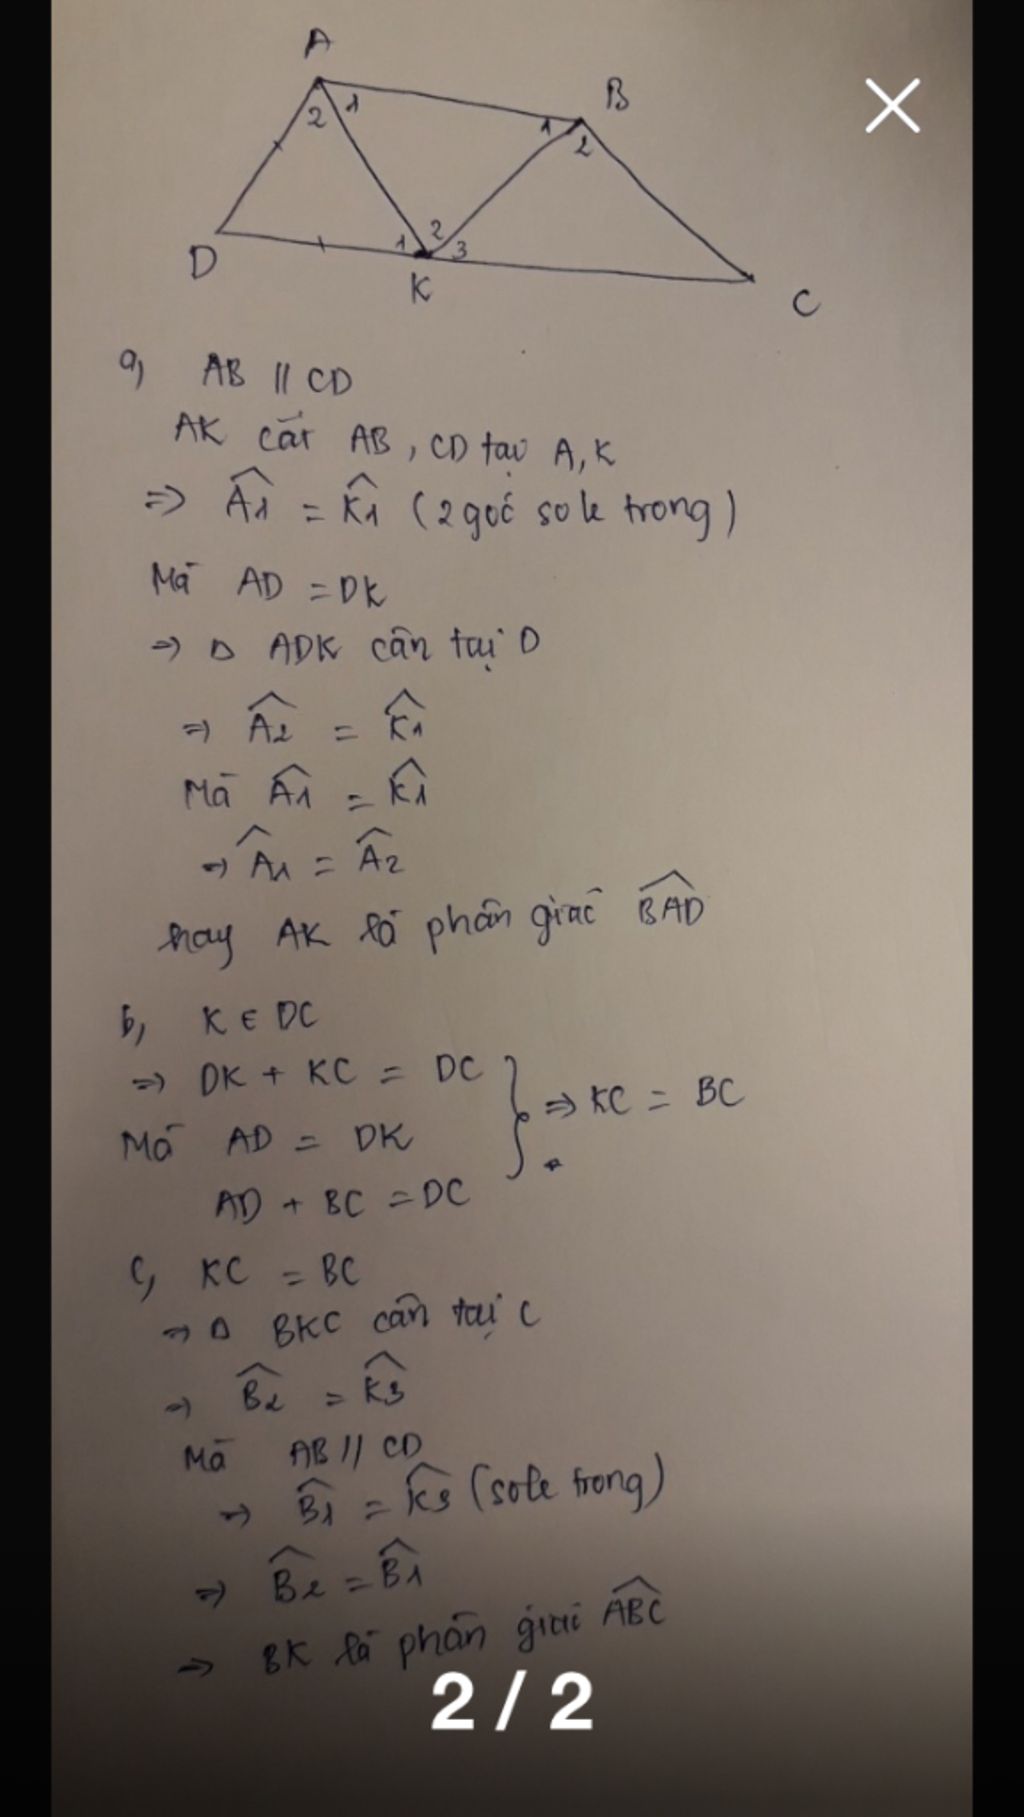 A
B
2 1
1
2
D
1 2 3
K
C
a, AB // CD
AK cắt AB, CD tại A, K
=> Â1 = K̂1 (2 góc sole trong)
Mà AD = DK
=> Δ ADK cân tại D
=> Â2 = K̂1
Mà Â1 = K̂1
=> Â1 = Â2
hay AK là phân giác BAD
b, K ∈ DC
=> DK + KC = DC
Mà AD = DK
AD + BC = DC
=> KC = BC
c, KC = BC
=> Δ BKC cân tại C
=> B̂2 = K̂3
Mà AB // CD
=> B̂1 = K̂3 (sole trong)
=> B̂2 = B̂1
=> BK là phân giai ABC
2 / 2